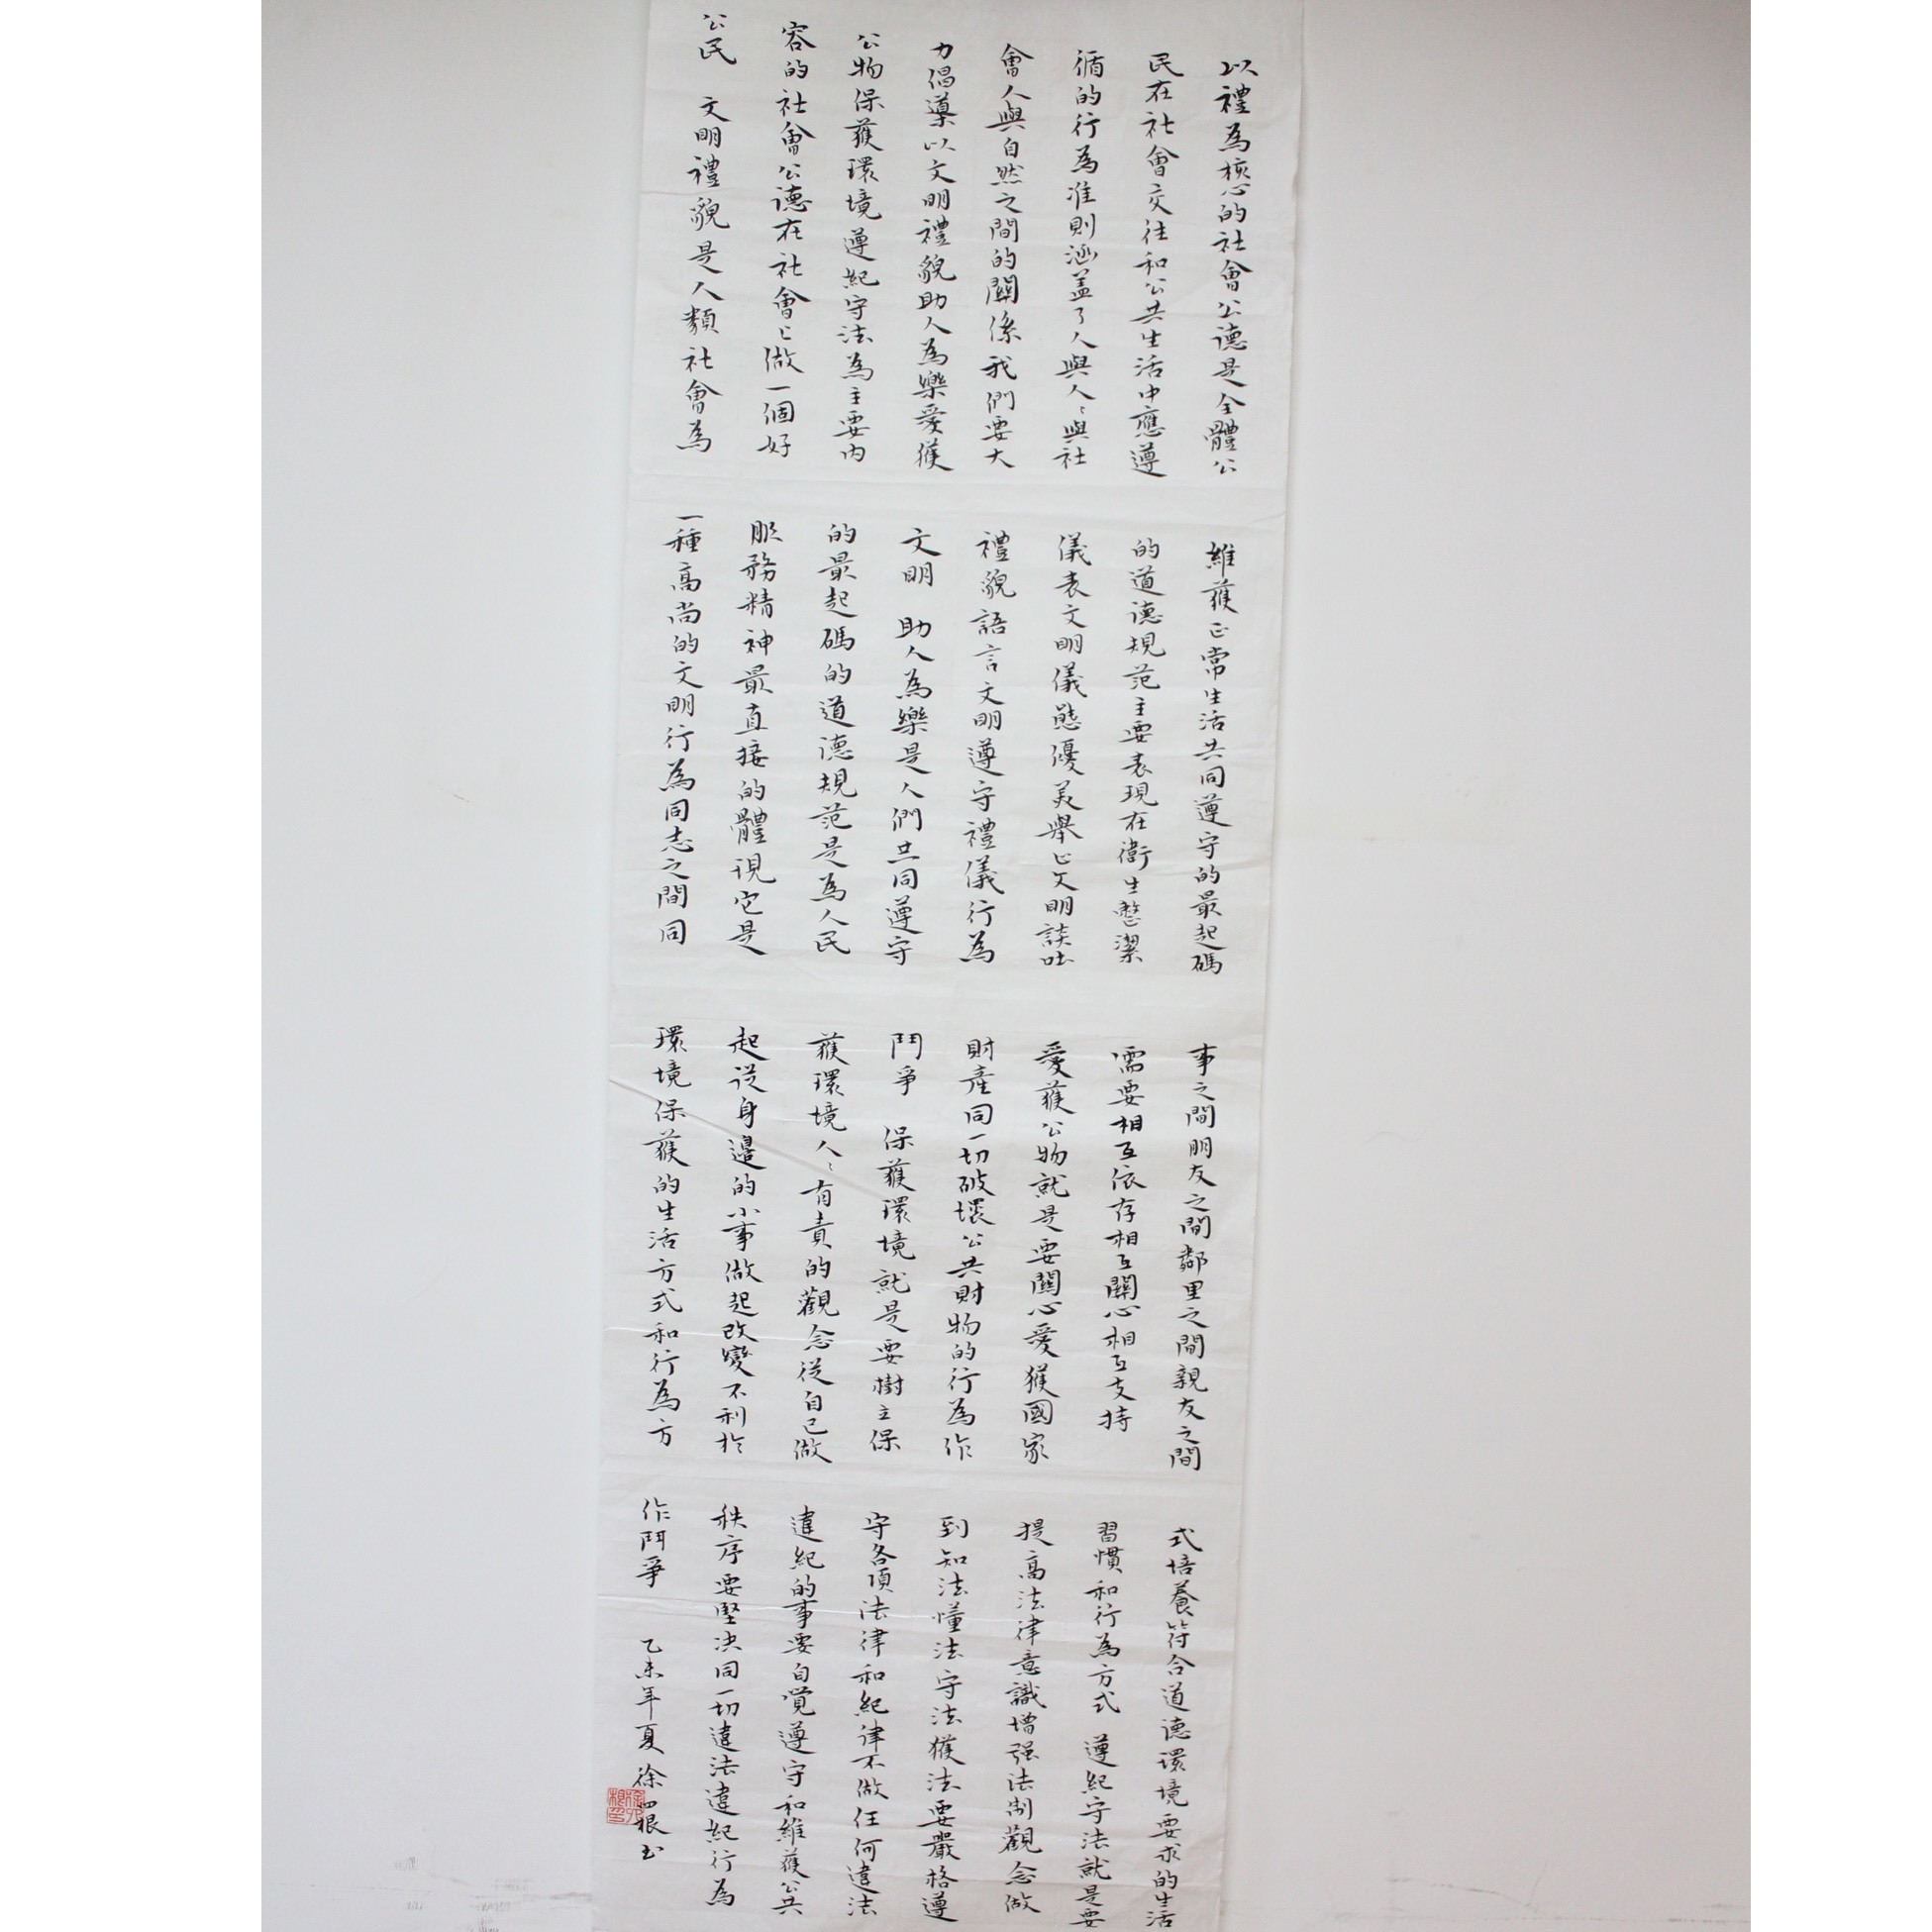 以禮為核心的社會公德是全體公
民在社會交往和公共生活中應遵
循的行為准則涵盖了人與人〻與社
會人與自然之間的關係我們要大
力倡導以文明禮貌助人為樂愛護
公物保護環境遵紀守法為主要内
容的社會公德在社會上做一個好
公民 文明禮貌是人類社會為
維護正常生活共同遵守的最起碼
的道德規范主要表現在衛生整潔
儀表文明儀態優美舉止文明談吐
禮貌語言文明遵守禮儀行為
文明 助人為樂是人們共同遵守
的最起碼的道德規范是為人民
服務精神最直接的體現它是
一種高尚的文明行為同志之間同
事之間朋友之間鄰里之間親友之間
需要相互依存相互關心相互支持
愛護公物就是要關心愛護國家
財產同一切破壞公共財物的行為作
鬥爭 保護環境就是要樹立保
護環境人〻有責的觀念從自己做
起從身邊的小事做起改變不利於
環境保護的生活方式和行為方
式培養符合道德環境要求的生活
習慣和行為方式 遵紀守法就是要
提高法律意識增强法制觀念做
到知法懂法守法護法要嚴格遵
守各項法律和紀律不做任何違法
違紀的事要自覺遵守和維護公共
秩序要堅决同一切違法違紀行為
作鬥爭 乙未年夏 徐四根书